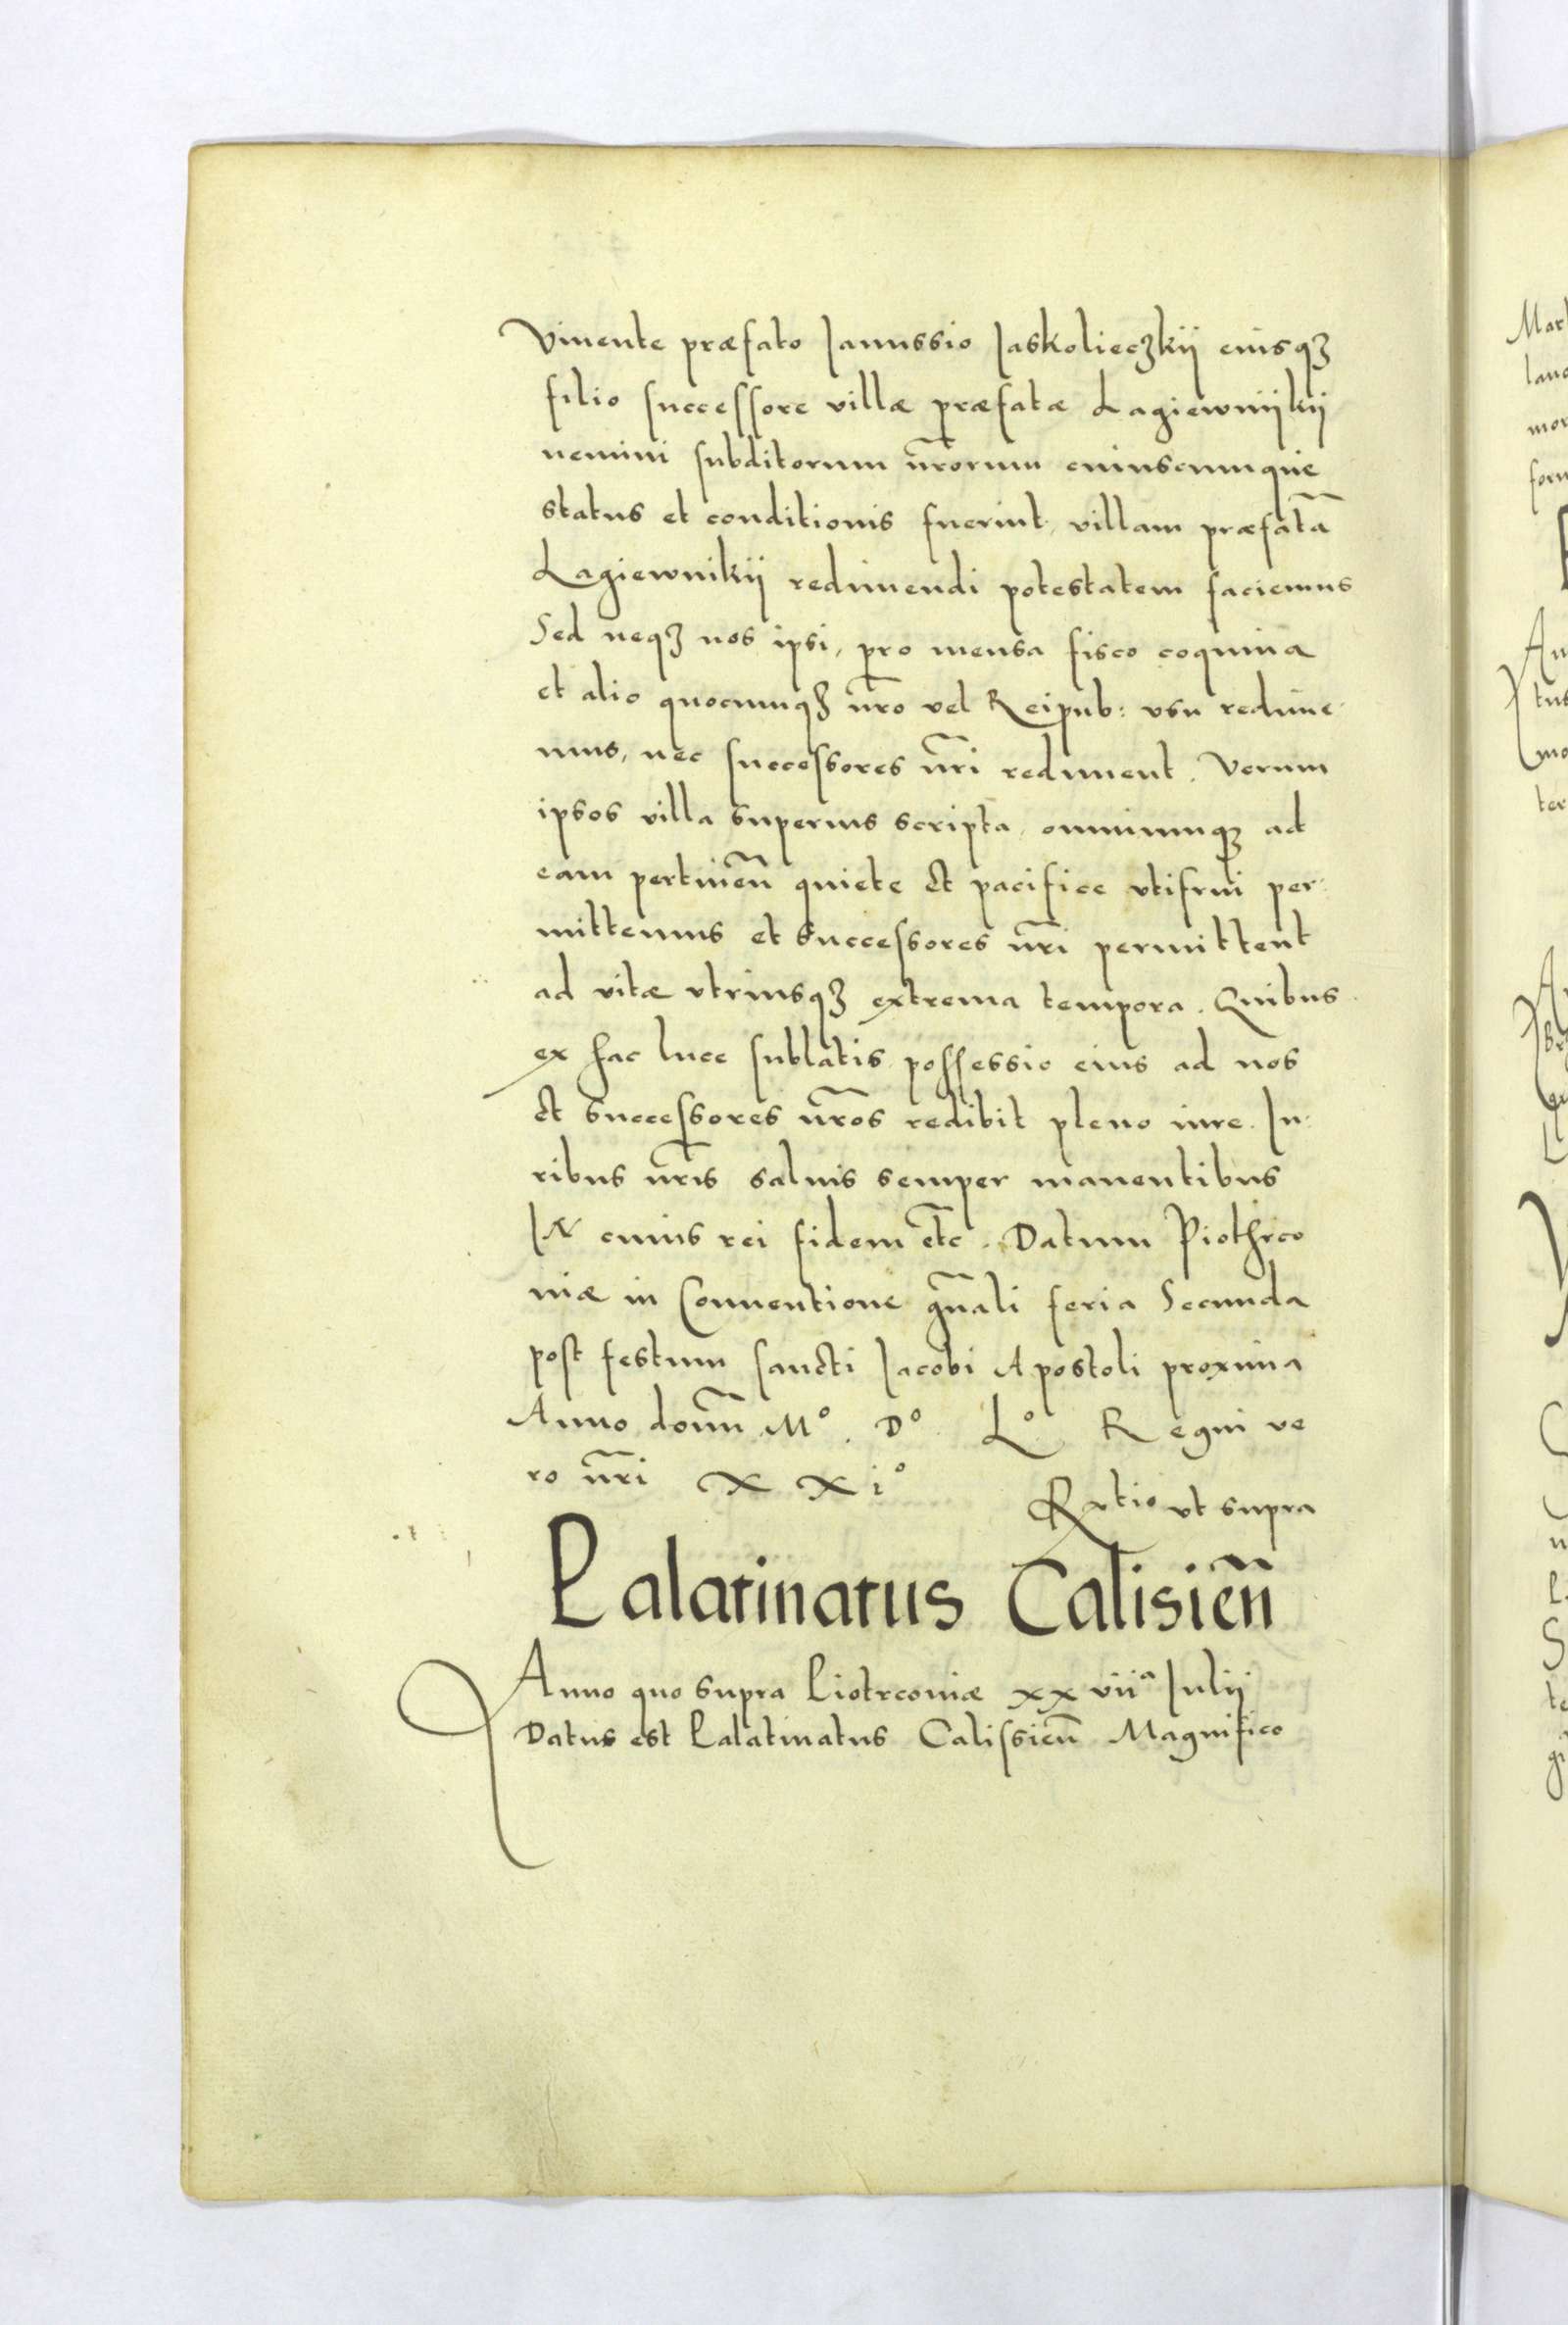 Viuente præfato Ianussio Iaskolieczkij eiusqꝫ
filio successore villæ præfatæ Lagiewnijkij
nemini subditorum nr̃orum cuiuscunque
status et conditionis fuerint, villam præfatã
Lagiewnikij redimendi potestatem faciemus
Sed neqꝫ nos ipsi, pro mensa fisco coquina
et alio quocunqꝫ nr̃o vel Reipub: vsu redime
mus, nec successores nr̃i rediment. Verum
ipsos villa superius scripta, omniumqꝫ ad
eam pertineñ quiete et pacifice vtifrui per
mittemus et successores nr̃i permittent
ad vitæ vtriusqꝫ extrema tempora. Quibus
ex hac luce sublatis possessio eius ad nos
et successores nr̃os redibit pleno iure. Iu
ribus nr̃is saluis semper manentibus
IN cuius rei fidem etc̃. Datum Piothrco
uiæ in Conuentione gñali feria Secunda
post festum sancti Iacobi Apostoli proxima
Anno domñ M° . D° L° Regni ve
ro nr̃i XXi°
Rᵃtio vt supra
Palatinatus Calisieñ
Anno quo supra Piotrcouiæ xxviiᵃ Iulij
Datus est Palatinatus Calissieñ Magnifico